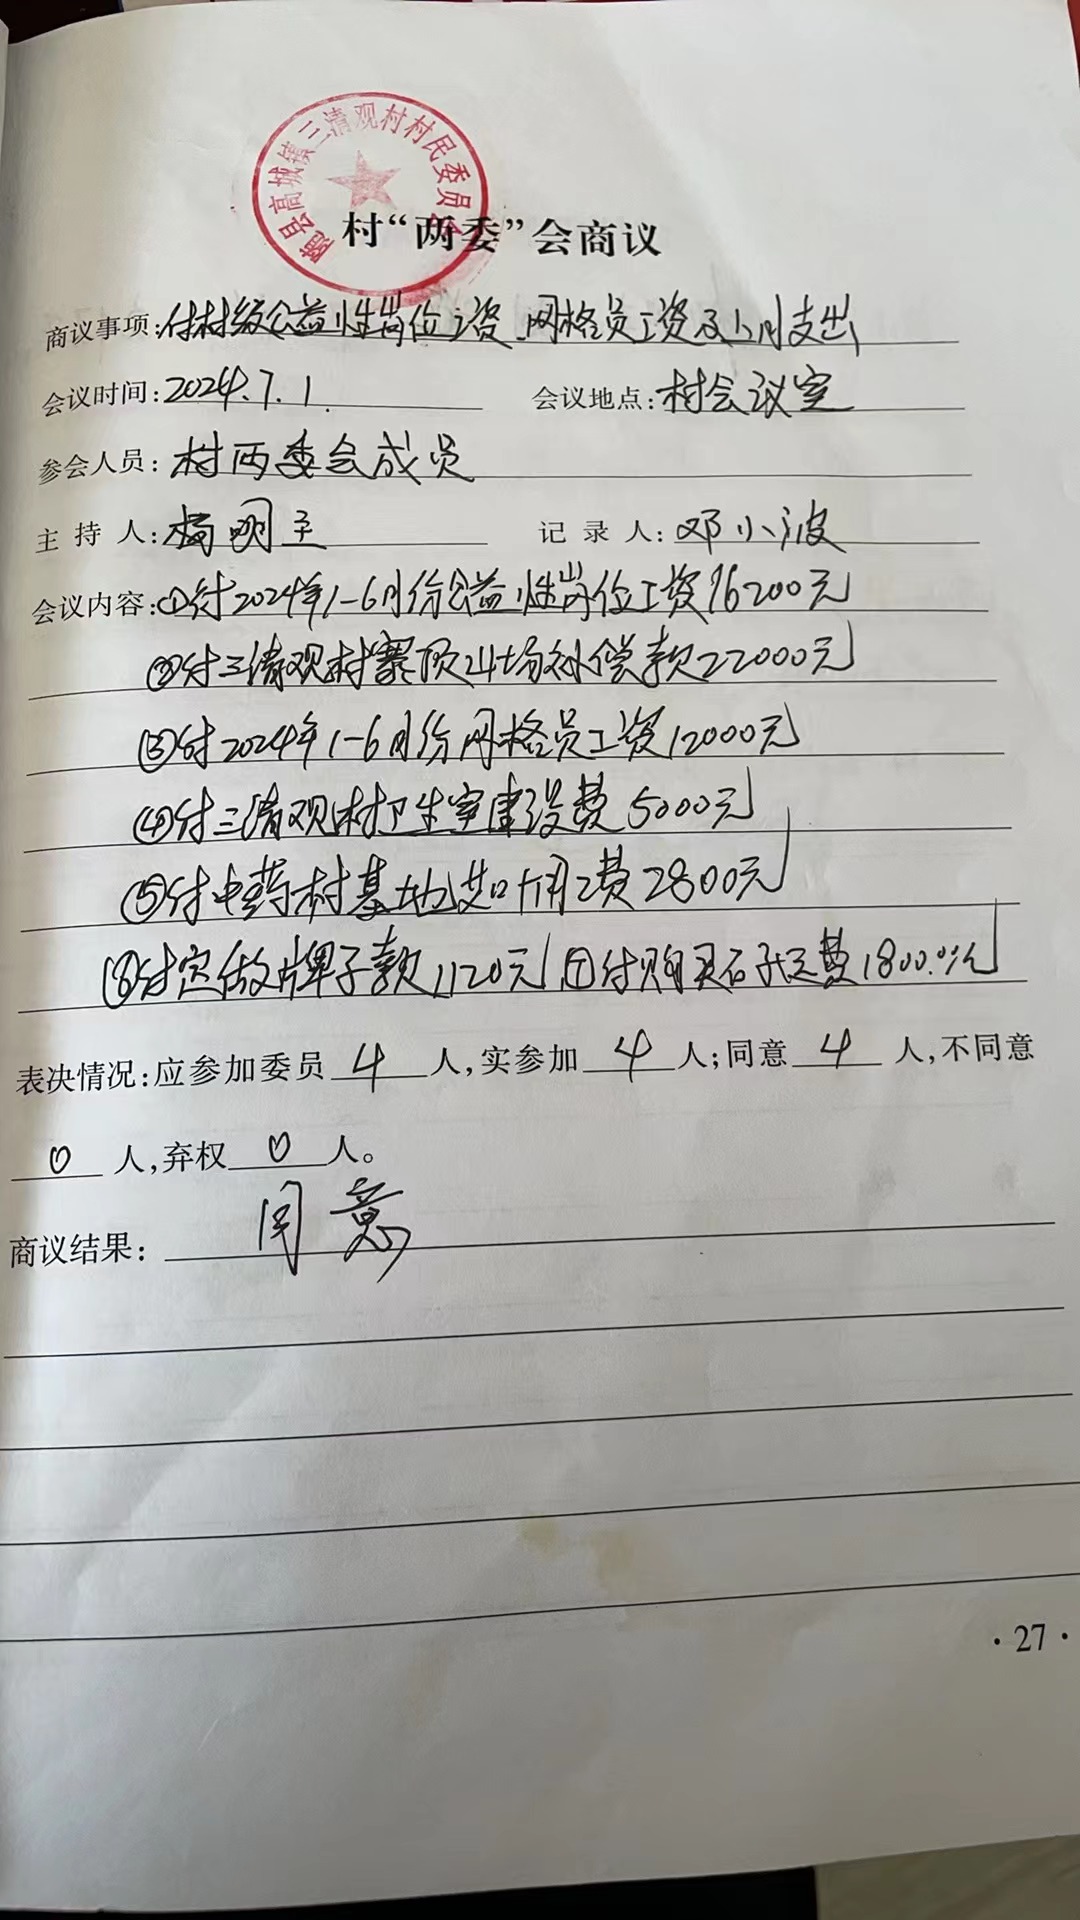 随县高城镇三清观村村民委员会
村“两委”会商议
商议事项:付村级公益性岗位工资、网格员工资及上月支出
会议时间:2024.7.1.
会议地点:村会议室
参会人员:村两委会成员
主持人:杨明
记录人:邓小波
会议内容:①付2024年1-6月份公益性岗位工资16200元
②付三清观村寨顶山场补偿款22000元
③付2024年1-6月份网格员工资12000元
④付三清观村卫生室建设费5000元
⑤付中药村基地 用工费2800元
⑥付定做牌子款1120元 ⑦付购买石子运费1800.0元
表决情况:应参加委员4人,实参加4人;同意4人,不同意
0人,弃权0人。
商议结果:同意
·27·